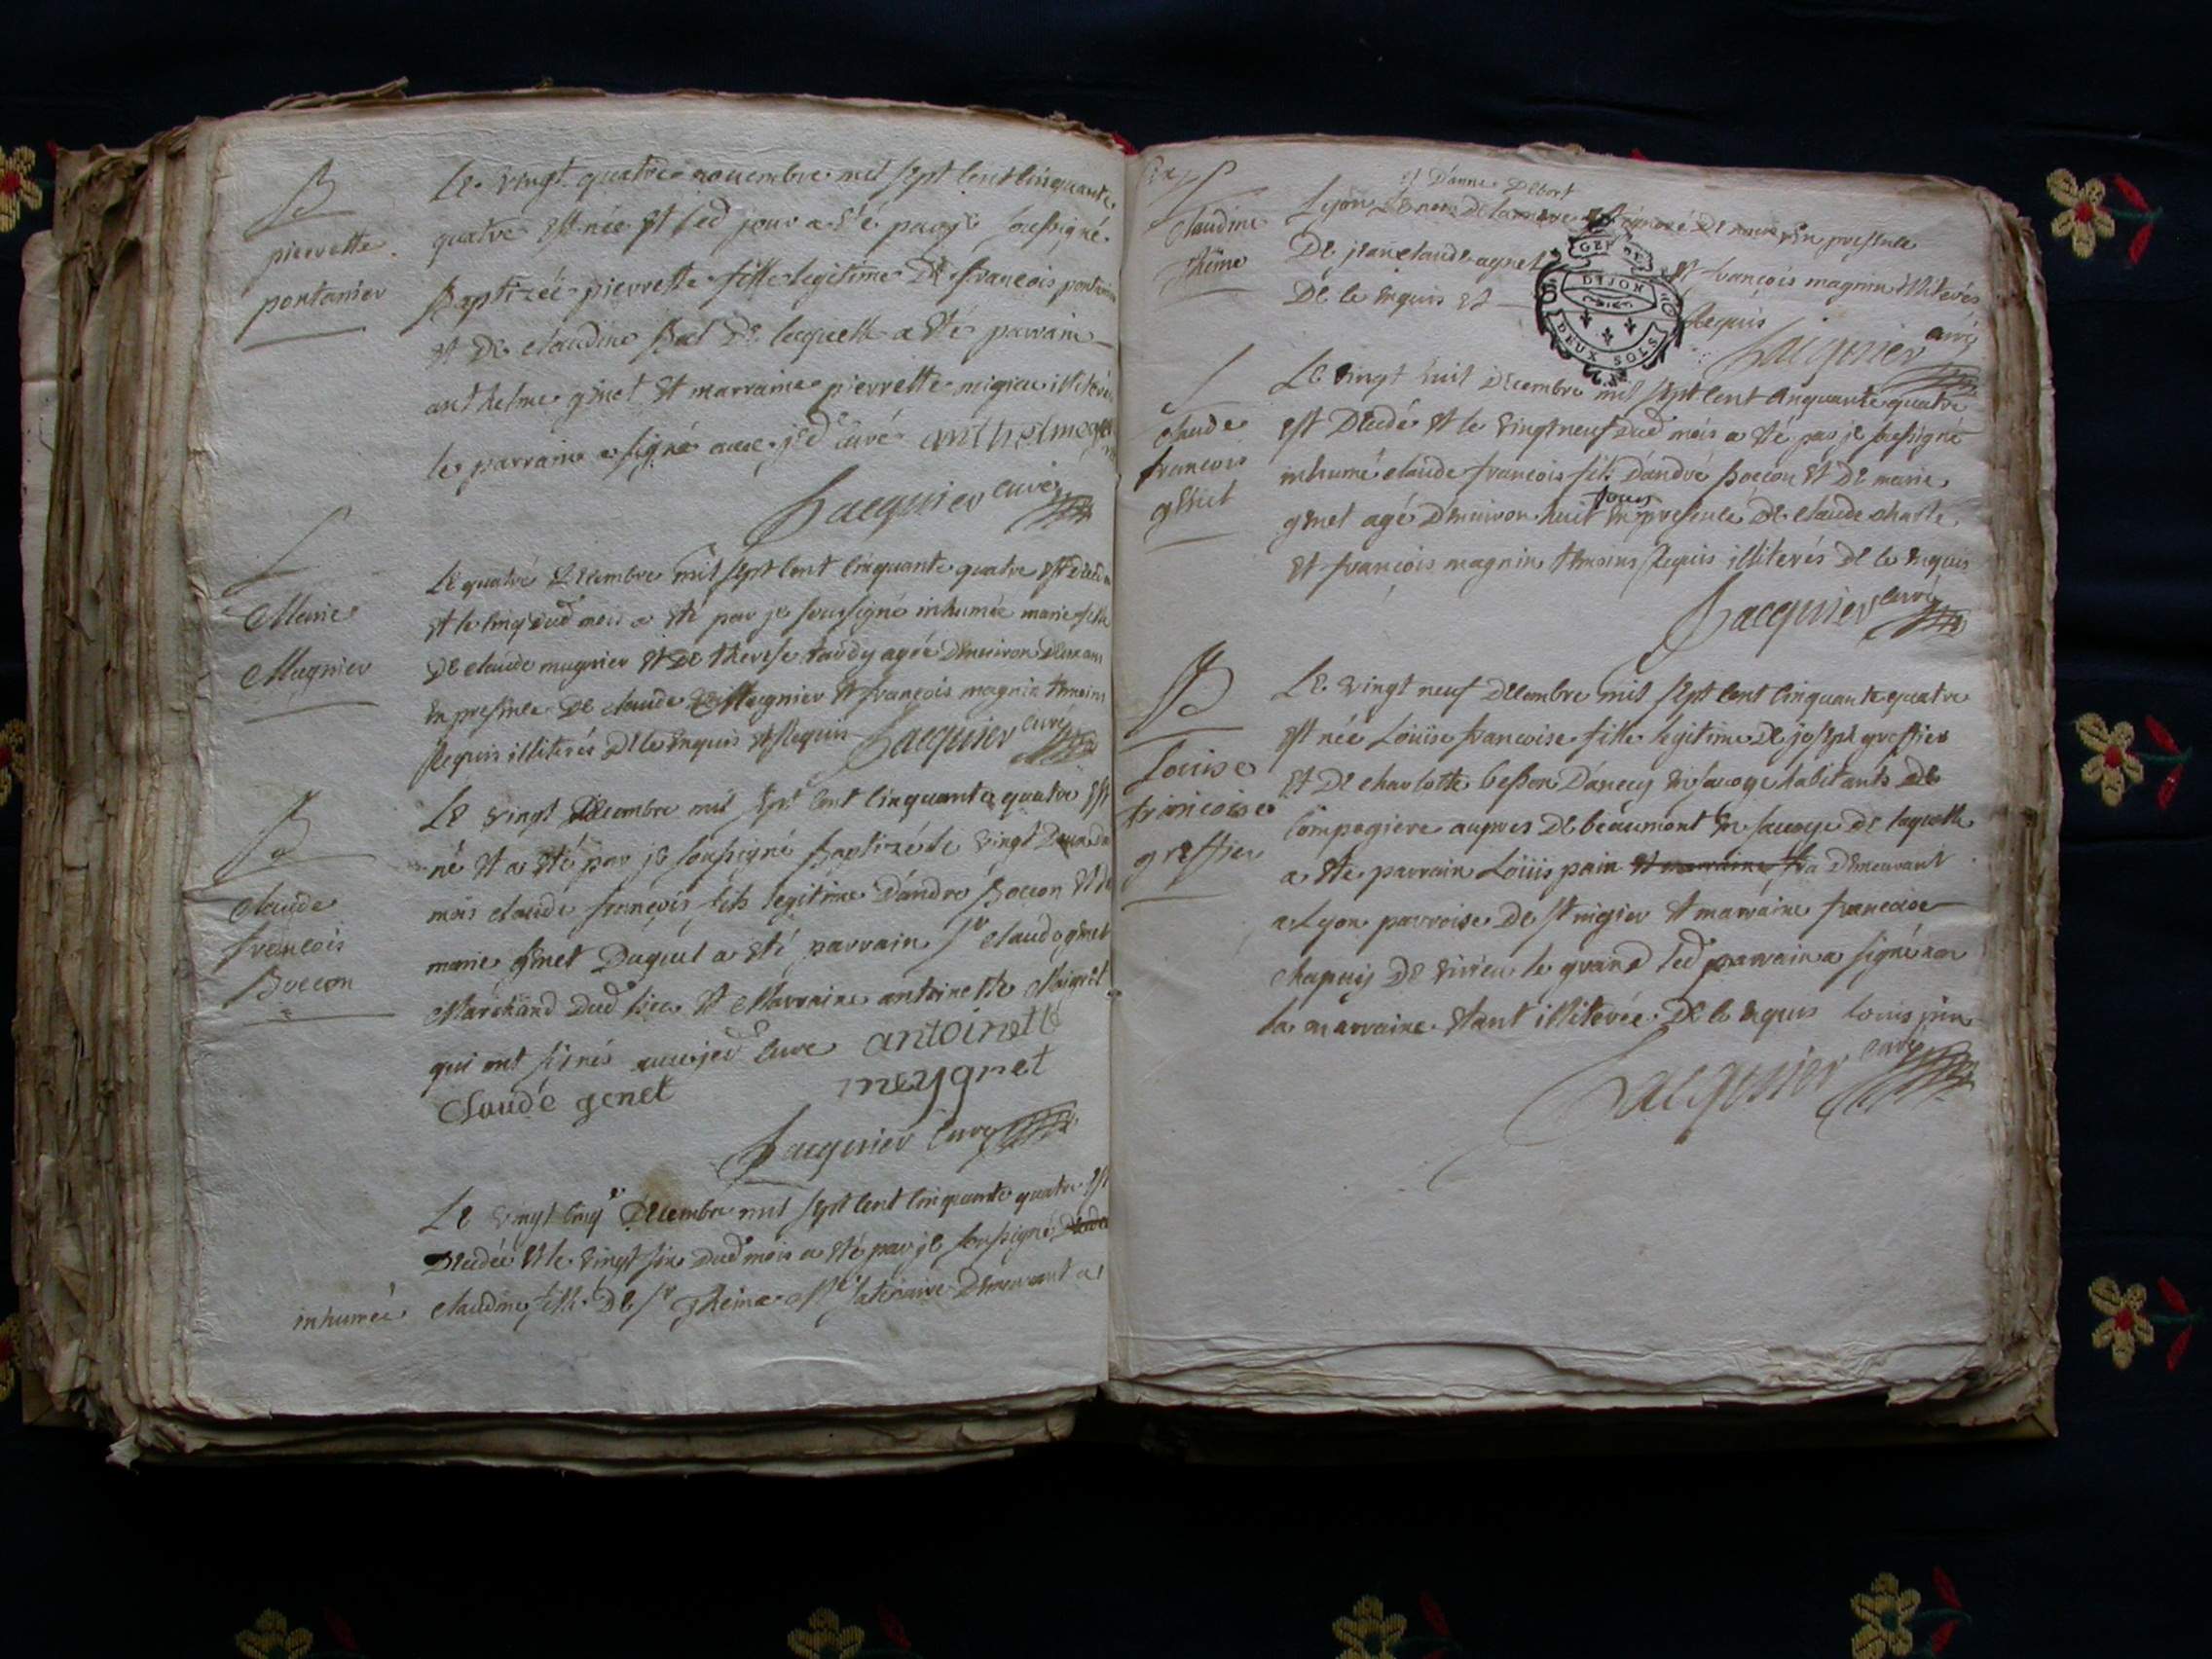 B
pierrette
pontanier
Le vingt quatre novembre mil sept cent cinquante
quatre est née et led jour a été par je soussigné
Baptizée pierrette fille legitime De françois pontanier
et De claudine Bal De lacquelle a été parrain
anthelme genet et marraine pierrette migieu illiterée
le parrain a signé avec je d curé anthelme genet
Jacquier curé
Marie
Magnier
Le quatre Decembre mil sept cent cinquante quatre est Decedée
et le cinq dud mois a été par je soussigné inhumée marie fille
De claude magnier et De therese tardy agée D'environ Deux ans
En presence De claude Magnier et françois magnin temoins
Requis illiterés De le Enquis et Requis Jacquier curé
B
claude
francois
Boccon
Le vingt Decembre mil sept cent cinquante quatre est
né et a été par je soussigné Baptizé le vingt Deux du
mois claude françois fils legitime D'andré Boccon et De
marie genet Duquel a été parrain sr claude genet
Marchand dud lieu et Marraine antoinette Meigret
qui ont signés avec je d curé antoinette
claude genet meygret
Jacquier curé
Le vingt cinq Decembre mil sept cent cinquante quatre est
Decedée et le vingt six dud mois a été par je soussigné
inhumée claudine fille De sr Theime Demeurant a
claudine
Theime
et D'anne Debort
Lyon Le nom De la mere ignoré De nous En presence
De jean claude et françois magnin illiterés
De le Enquis et Requis
GEN DE
DIJON
DEUX SOLS
Jacquier curé
claude
francois
genet
Le vingt huit Decembre mil sept cent cinquante quatre
est Decedé et le vingt neuf dud mois a été par je soussigné
inhumé claude francois fils D'andré Boccon et De marie
genet agé D'environ huit jours En presence De claude
et françois magnin temoins Requis illiterés De le Enquis
Jacquier curé
B
Louise
francoise
greffier
Le vingt neuf Decembre mil sept cent cinquante quatre
est née Loüise francoise fille legitime De joseph greffier
et De charlotte besson D'anecy En savoye habitants De
Compagiere aupres De beaumont En savoye De laquelle
a été parrain Loüis pain et marraine fra Demeurant
a Lyon parroise De st nizier et marraine francoise
chapuis De virieu le grand led parrain a signé non
la marraine étant illiterée De le Enquis louis pin
Jacquier curé